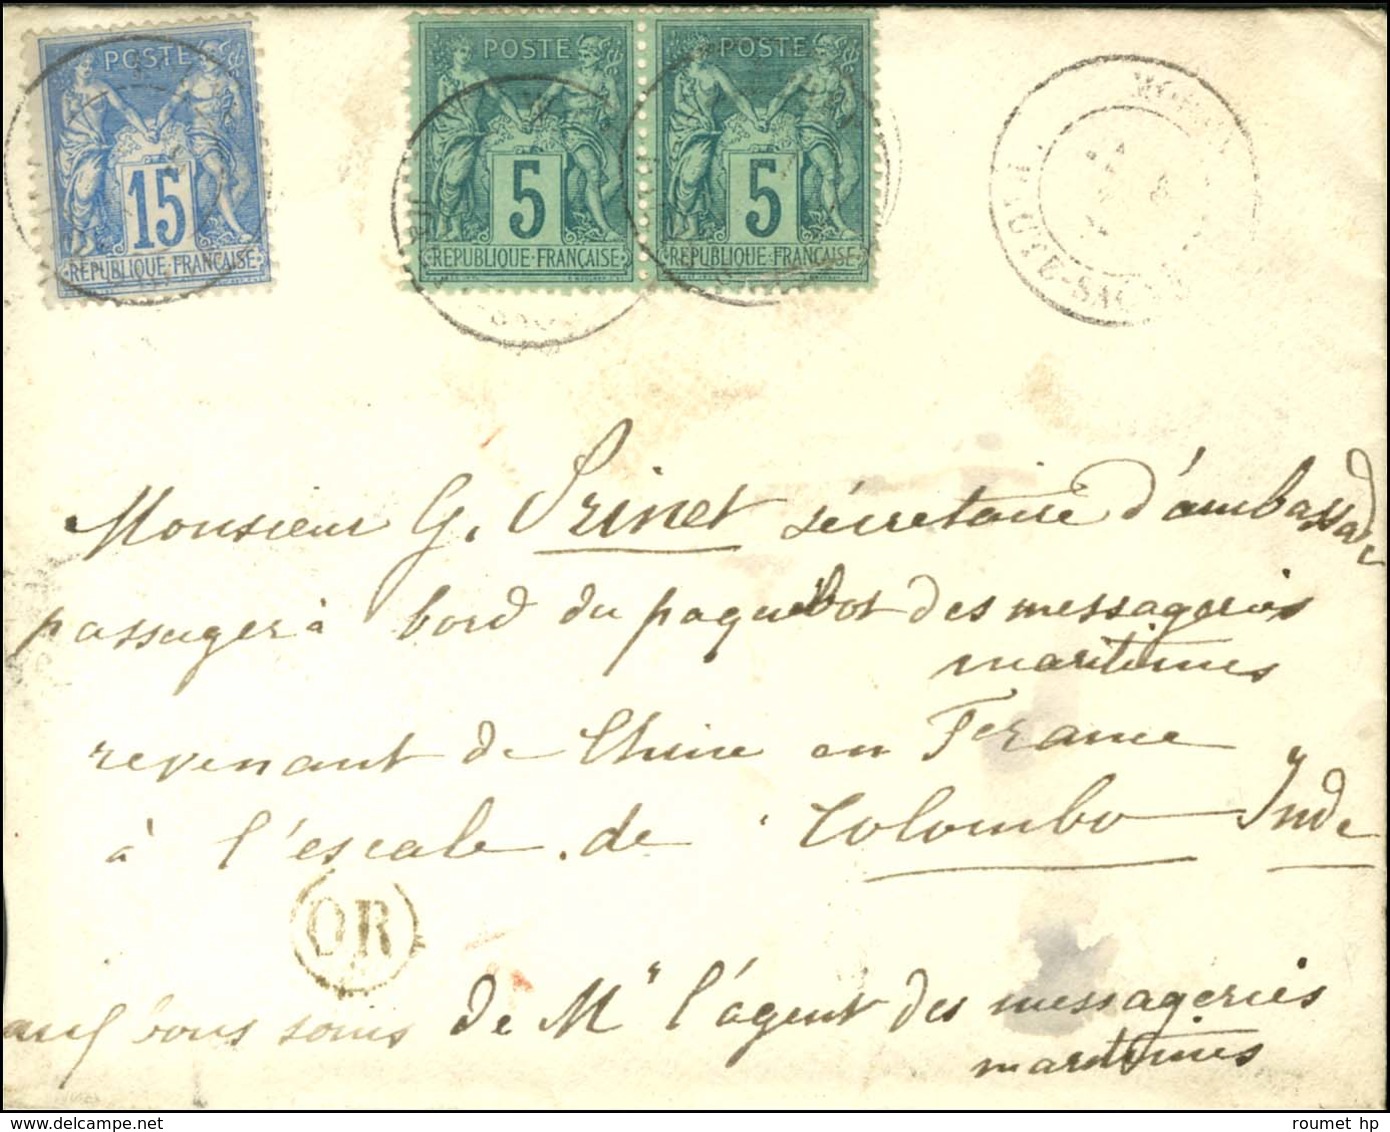 POSTE
15
REPUBLIQUE FRANÇAISE
POSTE
5
REPUBLIQUE FRANÇAISE
POSTE
5
REPUBLIQUE FRANÇAISE
HAUTE-SAONE
Monsieur G. Prinet sécretaire d'ambassade
passager à bord du paquebot des messageries
maritimes
revenant de Chine en France
à l'escale de Colombo Inde
OR
aux bons soins de Mr l'agent des messageries
maritimes
roumet hp